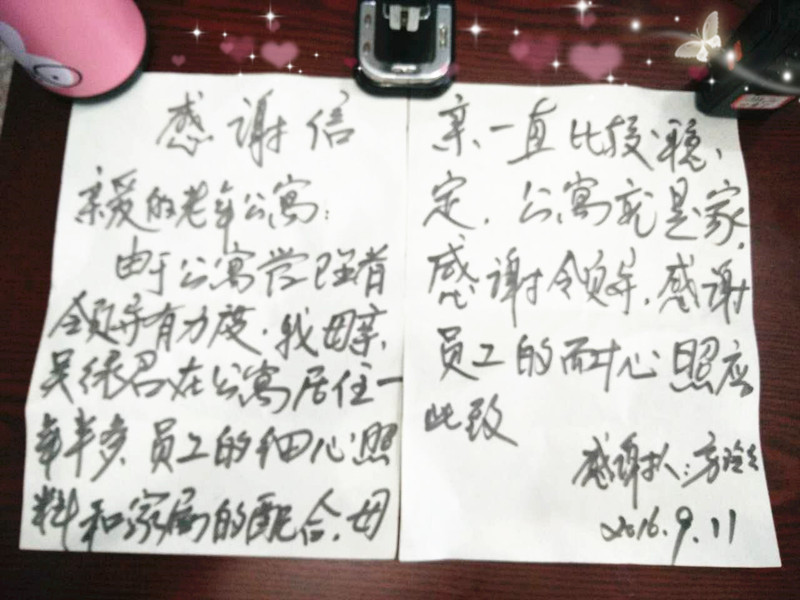 感谢信
亲爱的老年公寓：
由于公寓管理者
领导有力度，我母亲
吴绿君在公寓居住一
年半多，员工的细心照
料和家属的配合，母
亲一直比较稳
定，公寓就是家，
感谢领导，感谢
员工的耐心照应
此致
感谢人：方
2016.9.11